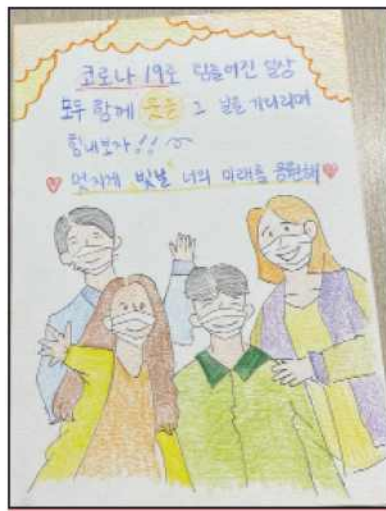 코로나 19로 힘들어진 일상
모두 함께 웃을 그 날을 기다리며
힘내보자!!
멋지게 빛날 너의 미래를 응원해